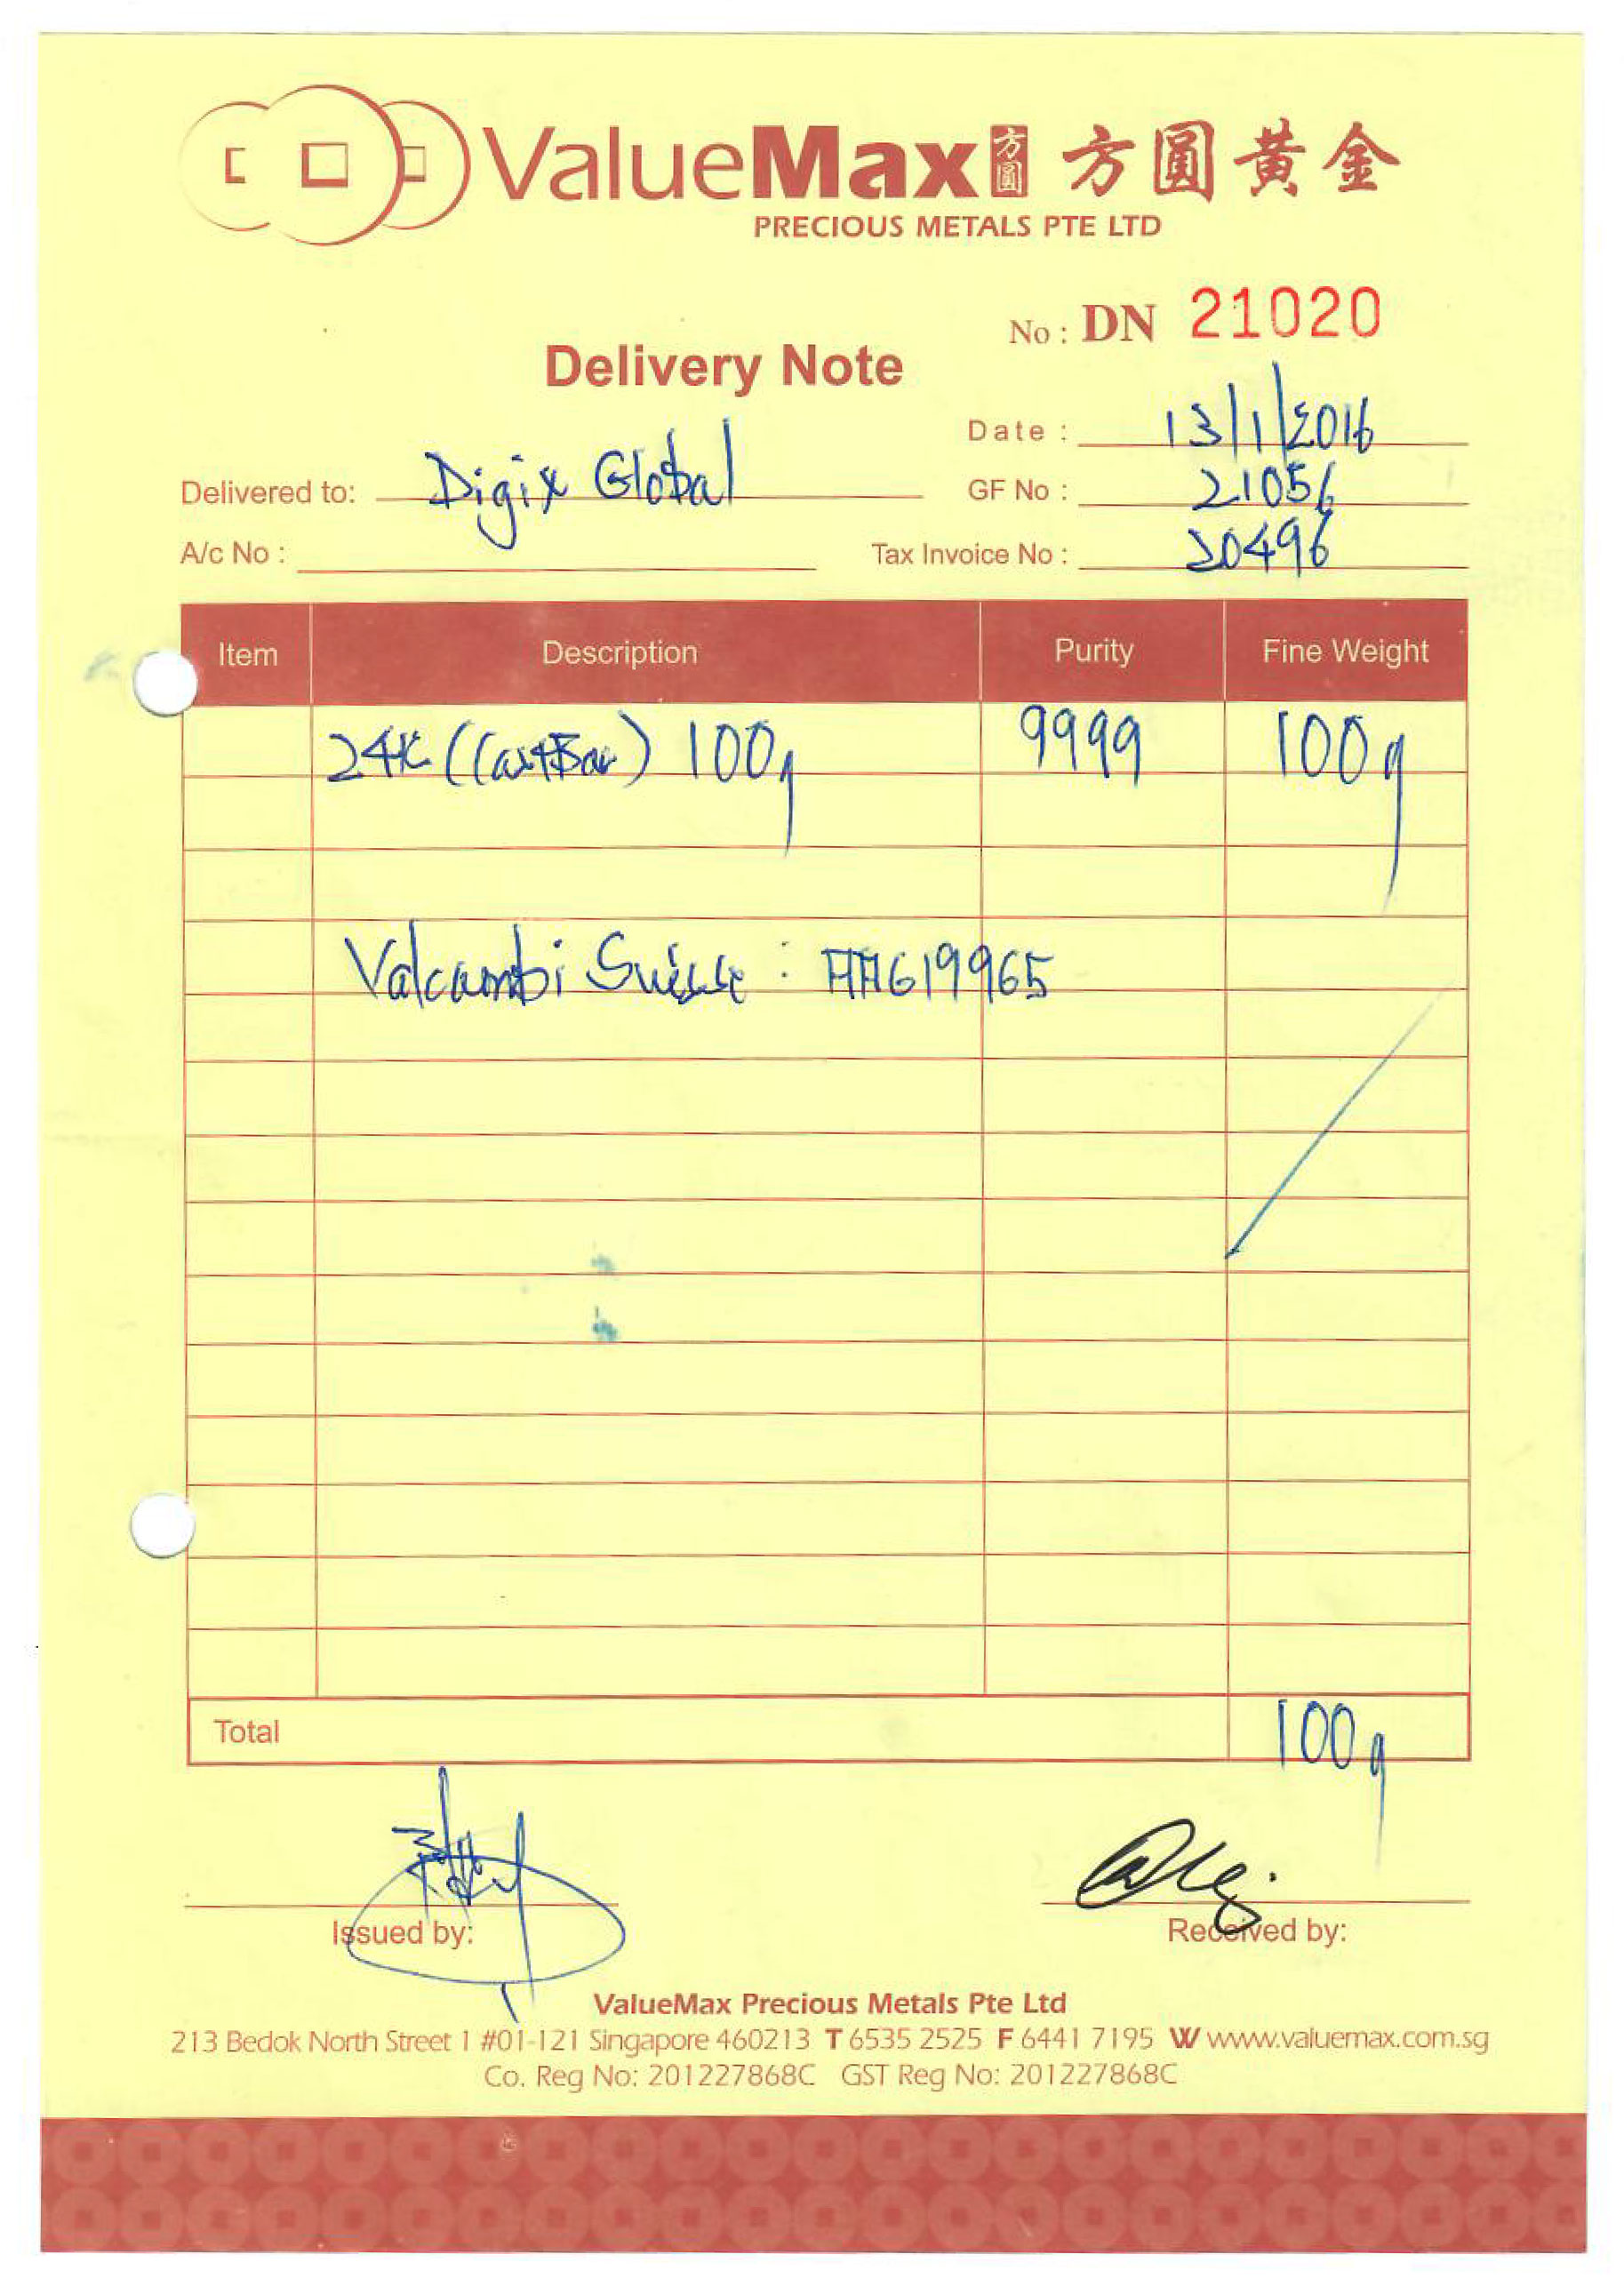 ValueMax 方圓 方圓黃金
PRECIOUS METALS PTE LTD
No : DN 21020
Delivery Note
Date : 13/1/2016
Delivered to: Digix Global
GF No : 21056
A/c No :
Tax Invoice No : 20496
Item Description Purity Fine Weight
24K (CastBar) 100g 9999 100g
Valcambi Suisse : AA619965
Total 100g
Issued by: Received by:
ValueMax Precious Metals Pte Ltd
213 Bedok North Street 1 #01-121 Singapore 460213 T 6535 2525 F 6441 7195 W www.valuemax.com.sg
Co. Reg No: 201227868C GST Reg No: 201227868C